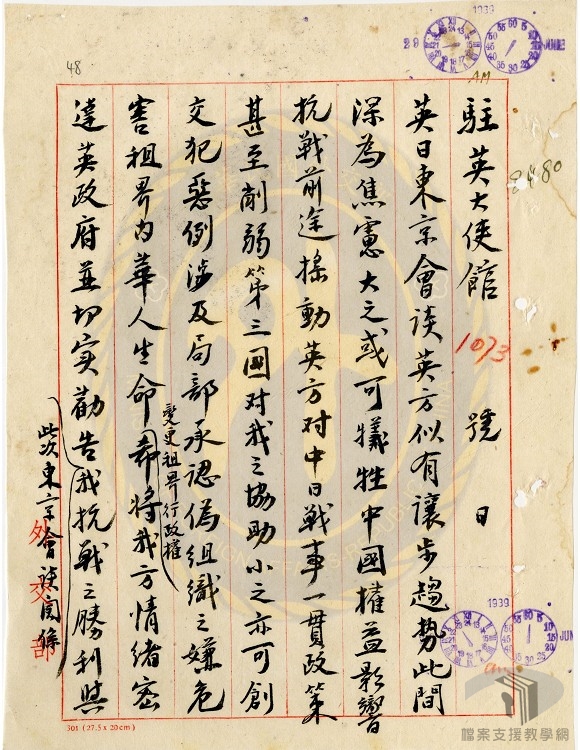 48
1939
29
JUNE
AM
8480
駐英大使館 1073 號 日
英日東京會談英方似有讓步趨勢此間
深為焦慮大之或可犧牲中國權益影響
抗戰前途搖動英方对中日戰事一貫政策
甚至削弱第三國对我之協助小之亦可創
交犯惡例涉及局部承認偽組織之嫌危
變更租界行政權
害租界內華人生命希將我方情緒密
達英政府並切实勸告我抗戰之勝利與
此次東京會談關係
外交部
1939
JUN
301 (27.5 x 20cm)
檔案支援教學網